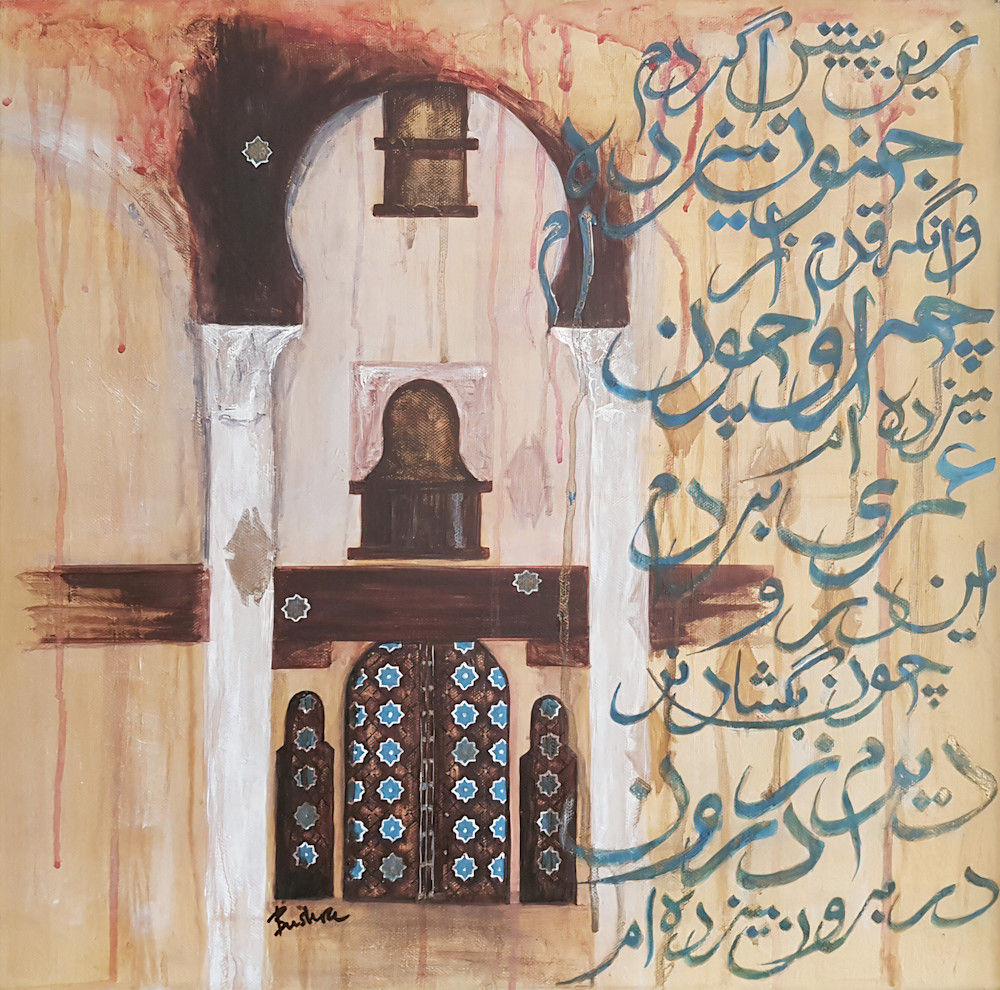 زین پیش اگر دم
جنون میزده ام
وانگه قدم از
چرا و چون
میزده ام
عمری بزدم
این در و
چون بگشادند
دیدم ز درون
در برون میزده ام